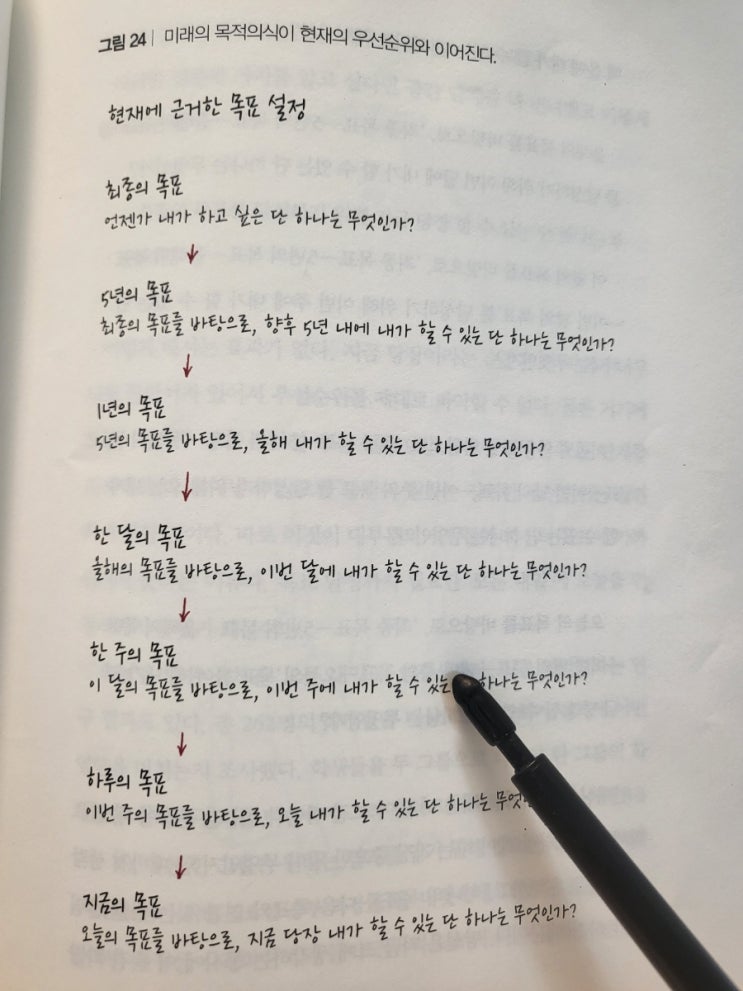 그림 24 | 미래의 목적의식이 현재의 우선순위와 이어진다.
현재에 근거한 목표 설정
최종의 목표
언젠가 내가 하고 싶은 단 하나는 무엇인가?
5년의 목표
최종의 목표를 바탕으로, 향후 5년 내에 내가 할 수 있는 단 하나는 무엇인가?
1년의 목표
5년의 목표를 바탕으로, 올해 내가 할 수 있는 단 하나는 무엇인가?
한 달의 목표
올해의 목표를 바탕으로, 이번 달에 내가 할 수 있는 단 하나는 무엇인가?
한 주의 목표
이 달의 목표를 바탕으로, 이번 주에 내가 할 수 있는 하나는 무엇인가?
하루의 목표
이번 주의 목표를 바탕으로, 오늘 내가 할 수 있는 단 하나는
지금의 목표
오늘의 목표를 바탕으로, 지금 당장 내가 할 수 있는 단 하나는 무엇인가?